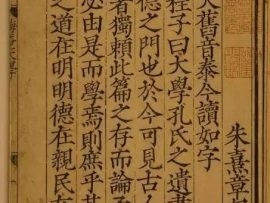 朱熹章
大舊音泰今讀如字
程子曰大學孔氏之遺書
德之門也於今可見古人
者獨賴此篇之存而論
必由是而學焉則庶乎其
之道在明明德在親民